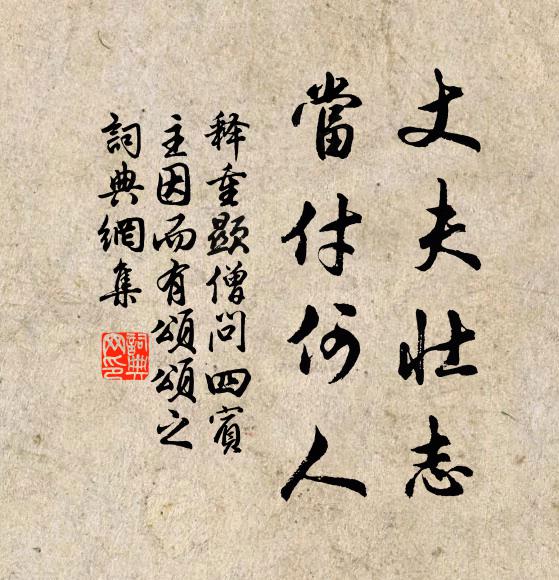 丈夫壯志
當付何人
释重顯僧问四賓
主因而有頌頌之
詞典網集
詞典
网印